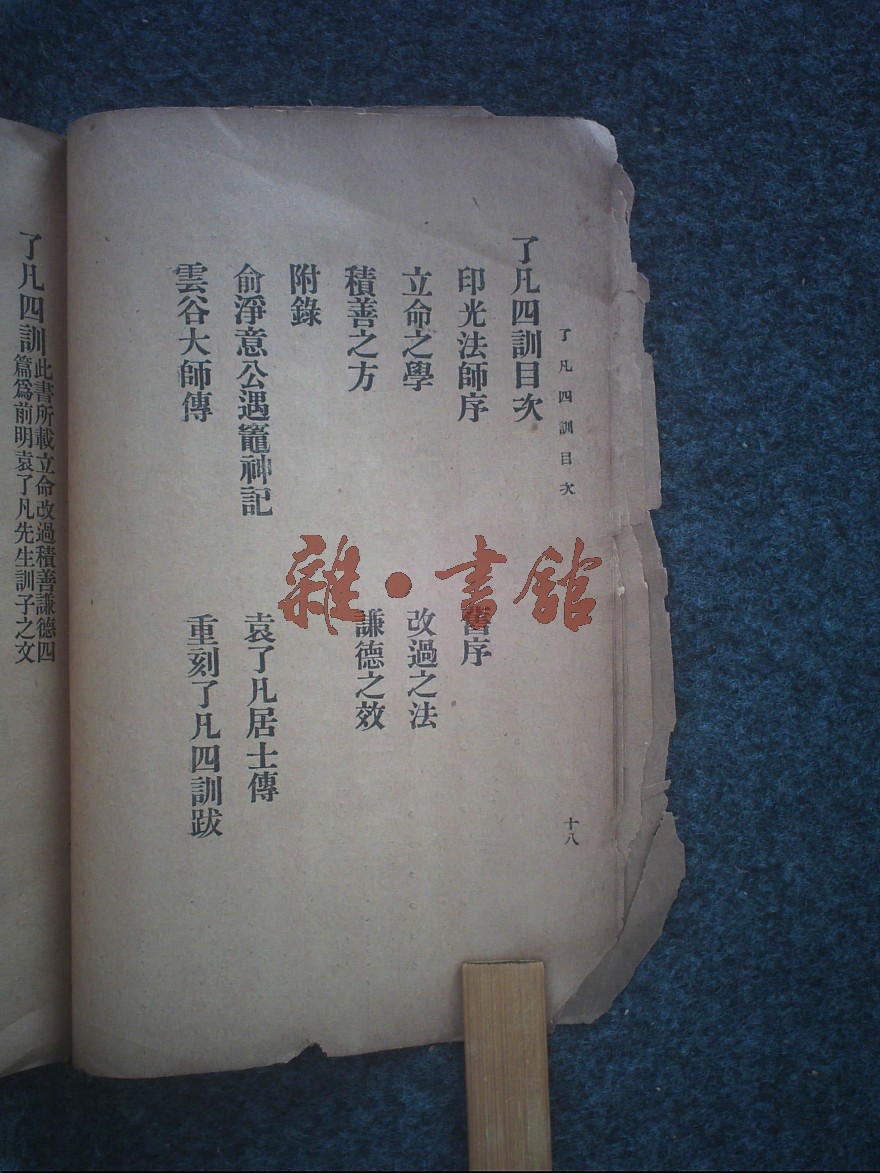 了凡四訓目次
十八
了凡四訓目次
印光法師序
舊序
立命之學
改過之法
積善之方
謙德之效
附錄
俞淨意公遇竈神記
袁了凡居士傳
雲谷大師傳
重刻了凡四訓跋
雜·書館
了凡四訓
此書所載立命改過積善謙德四
篇爲前明袁了凡先生訓子之文